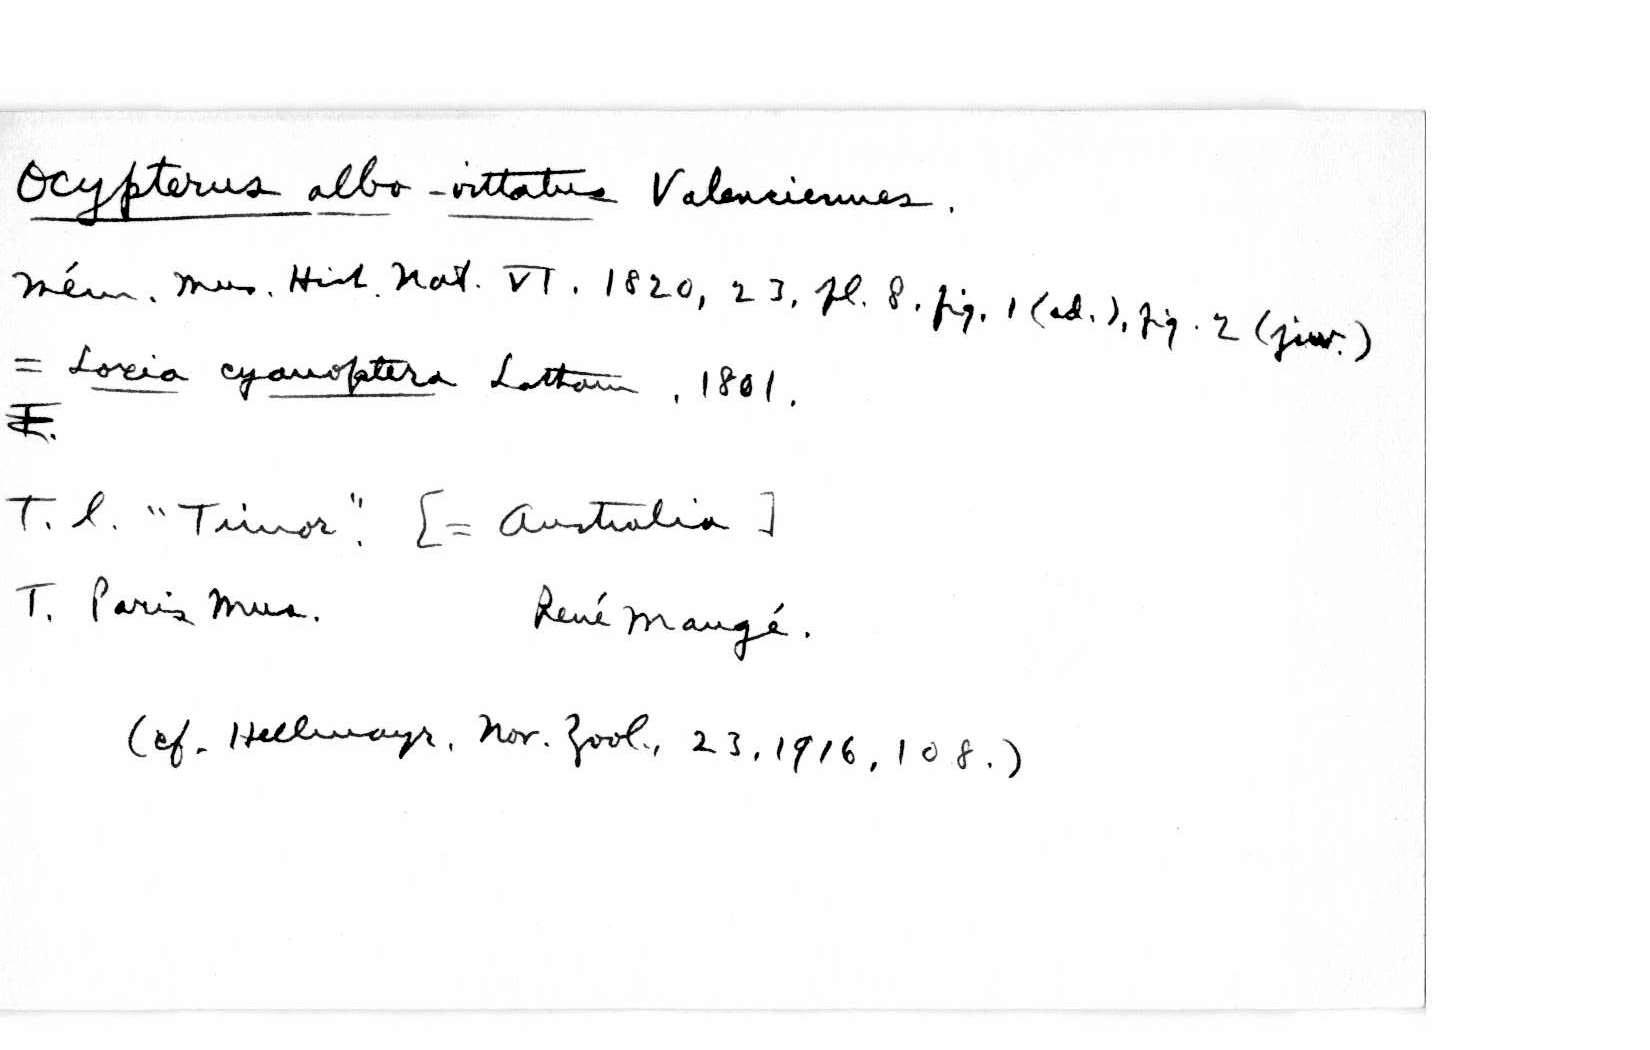 Ocypterus albo-vittatus Valenciennes.
Mém. Mus. Hist. Nat. VI. 1820, 23, pl. 8. fig. 1 (ad.), fig. 2 (juv.)
= Loxia cyanoptera Latham, 1801.
T. l. "Timor". [= Australia]
T. Paris Mus. René Maugé.
(cf. Hellmayr, Nov. Zool., 23, 1916, 108.)